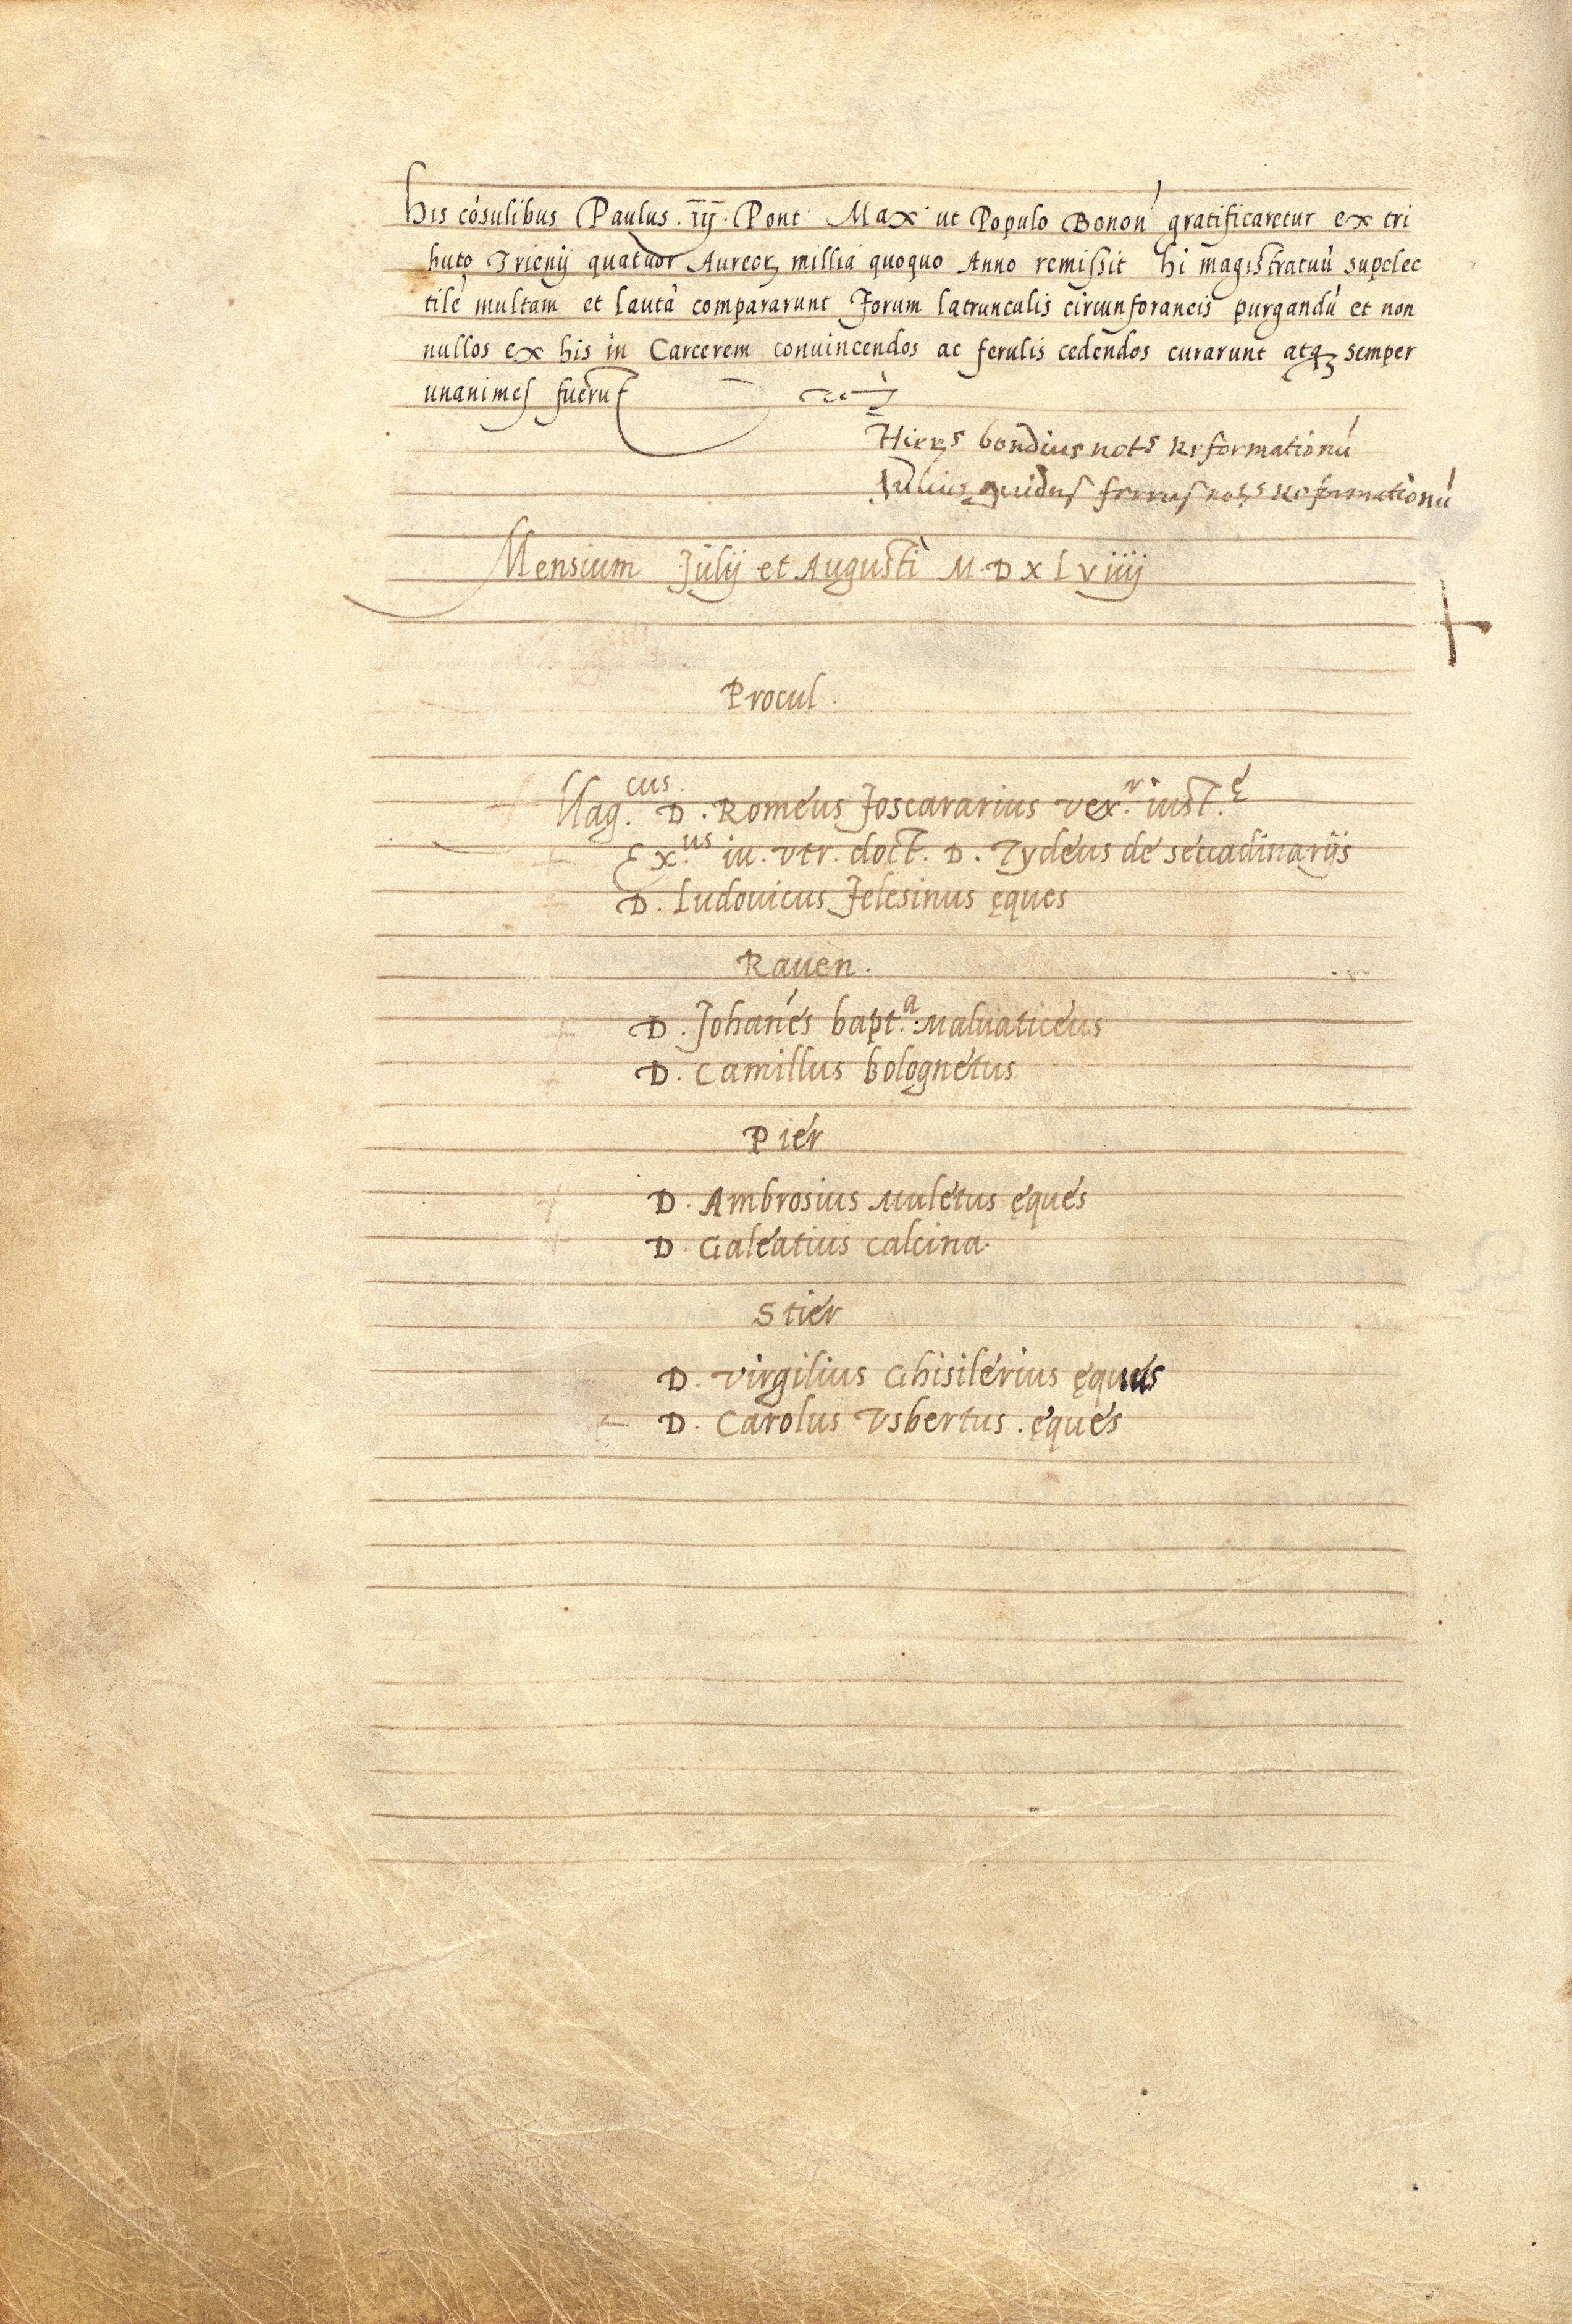 His cōsulibus Paulus . iij . Pont Max ut Populo Bonoń gratificaretur ex tri
buto Trienij quatuor Aureoꝝ millia quoquo Anno remissit hi magistratuū supelec
tilē multam et lautā compararunt Forum latrunculis circunforaneis purgandū et non
nullos ex his in Carcerem conuincendos ac ferulis cedendos curarunt atqꝫ semper
unanimes fuerūt
bondius nots Reformationū
Julius guidus ferrus nots Reformationū
Mensium Julij et Augusti M.D x L v iiij
Procul.
Mag.cus D. Romeus foscararius vex.r iust.ę
Ex.us iu. vtr. doct. D. Tydeus de secadinarijs
D. Ludouicus felesinus ęques
Rauen.
D. Johańes bapt.a Maluaticeus
D. Camillus bolognetus
Pier
D. Ambrosius Muletus ęques
D. Galeatius Calcina.
Stier
D. Virgilius Ghisilerius ęques
D. Carolus Vsbertus . ęques